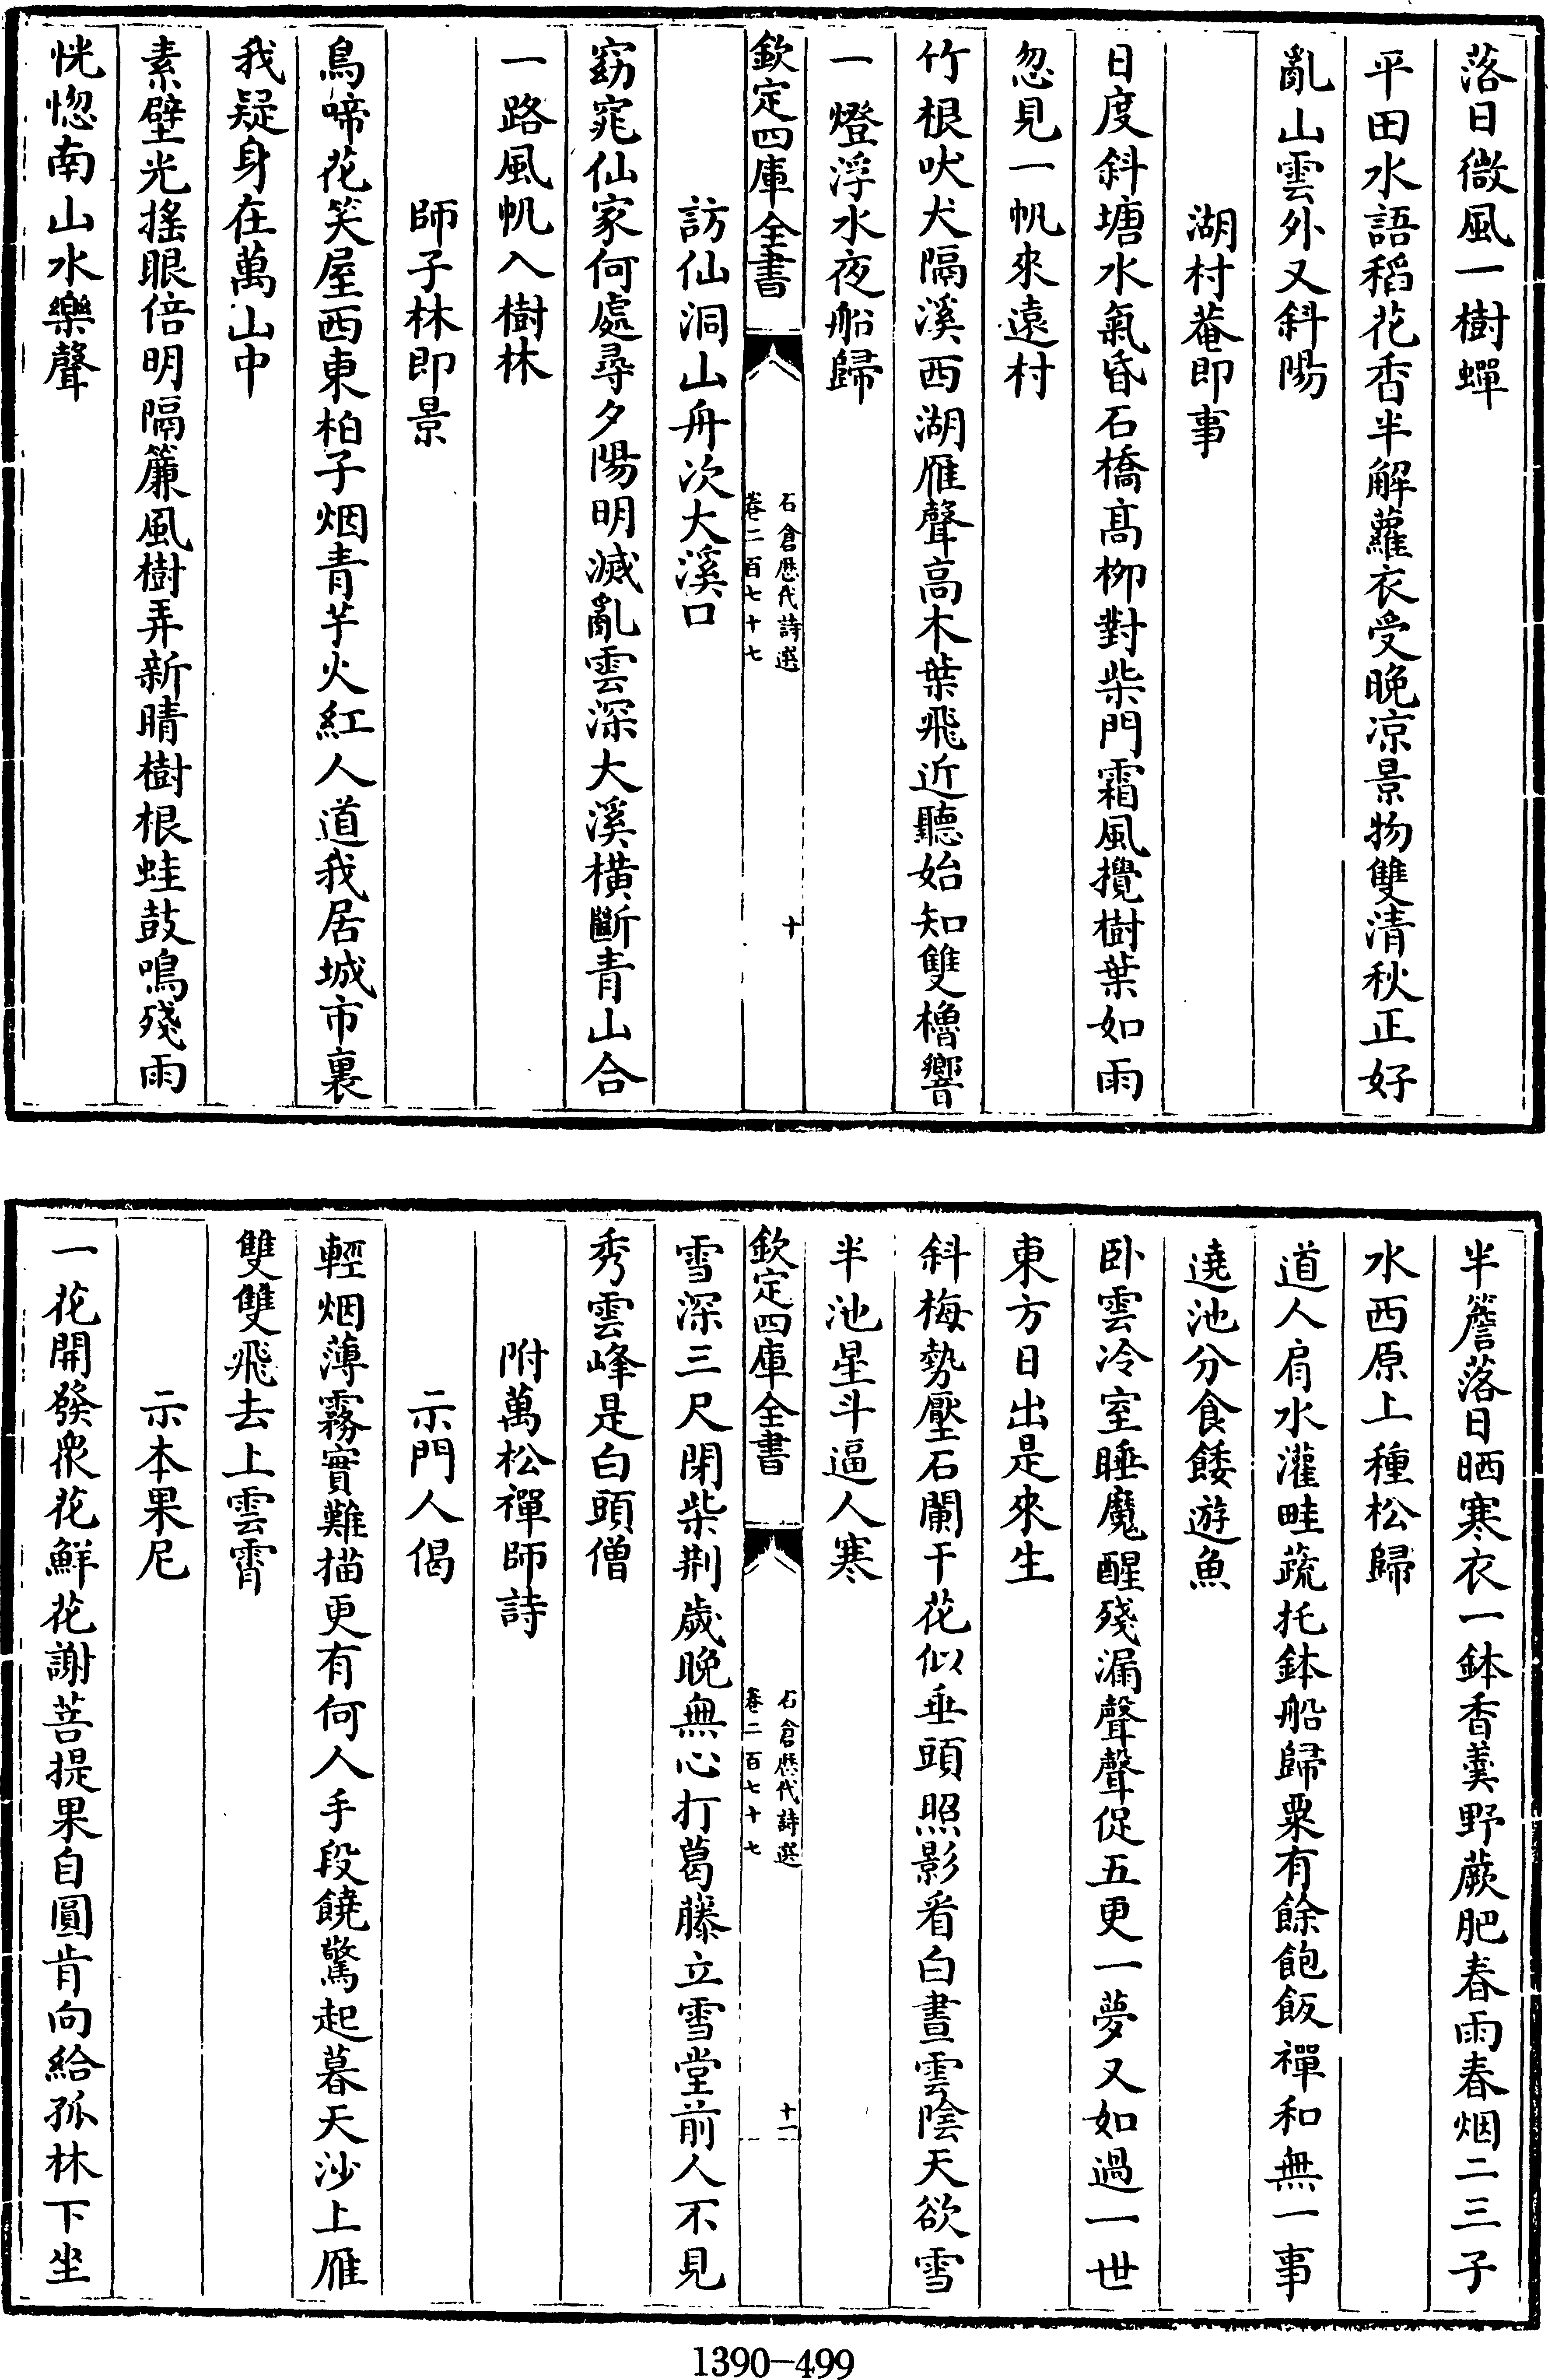 落日微風一樹蟬
平田水語稻花香半解蘿衣受晚凉景物雙清秋正好
亂山雲外又斜陽
湖村菴即事
日度斜塘水氣昏石橋髙柳對柴門霜風攪樹葉如雨
忽見一帆來遠村
竹根吠犬隔溪西湖雁聲高木葉飛近聽始知雙櫓響
一燈浮水夜船歸
欽定四庫全書
石倉歴代詩選
卷二百七十七
十
訪仙洞山舟次大溪口
窈窕仙家何處尋夕陽明滅亂雲深大溪橫斷青山合
一路風帆入樹林
師子林即景
鳥啼花笑屋西東柏子烟青芋火紅人道我居城市裏
我疑身在萬山中
素壁光搖眼倍明隔簾風樹弄新晴樹根蛙鼓鳴殘雨
恍惚南山水樂聲
半簷落日晒寒衣一鉢香羹野蕨肥春雨春烟二三子
水西原上種松歸
道人肩水灌畦蔬托鉢船歸粟有餘飽飯禪和無一事
遶池分食餧遊魚
卧雲冷室睡魔醒殘漏聲聲促五更一夢又如過一世
東方日出是來生
斜梅勢壓石闌干花似垂頭照影看白晝雲陰天欲雪
半池星斗逼人寒
欽定四庫全書
石倉歴代詩選
卷二百七十七
十一
雪深三尺閉柴荆歲晚無心打葛藤立雪堂前人不見
秀雲峰是白頭僧
附萬松禪師詩
示門人偈
輕烟薄霧實難描更有何人手段饒驚起暮天沙上雁
雙雙飛去上雲霄
示本果尼
一花開發衆花鮮花謝菩提果自圓肯向給孤林下坐
1390-499